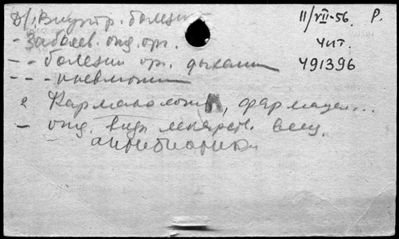 Д/. Внутр. болезни
- Заболев. отд. орг.
- - болезни ор. дыхания
- - - пневмонии
Фармакология, фармацев...
- отд. виды лекарств. вещ.
антибиотики
11/VII-56. Р.
Чит.
491396